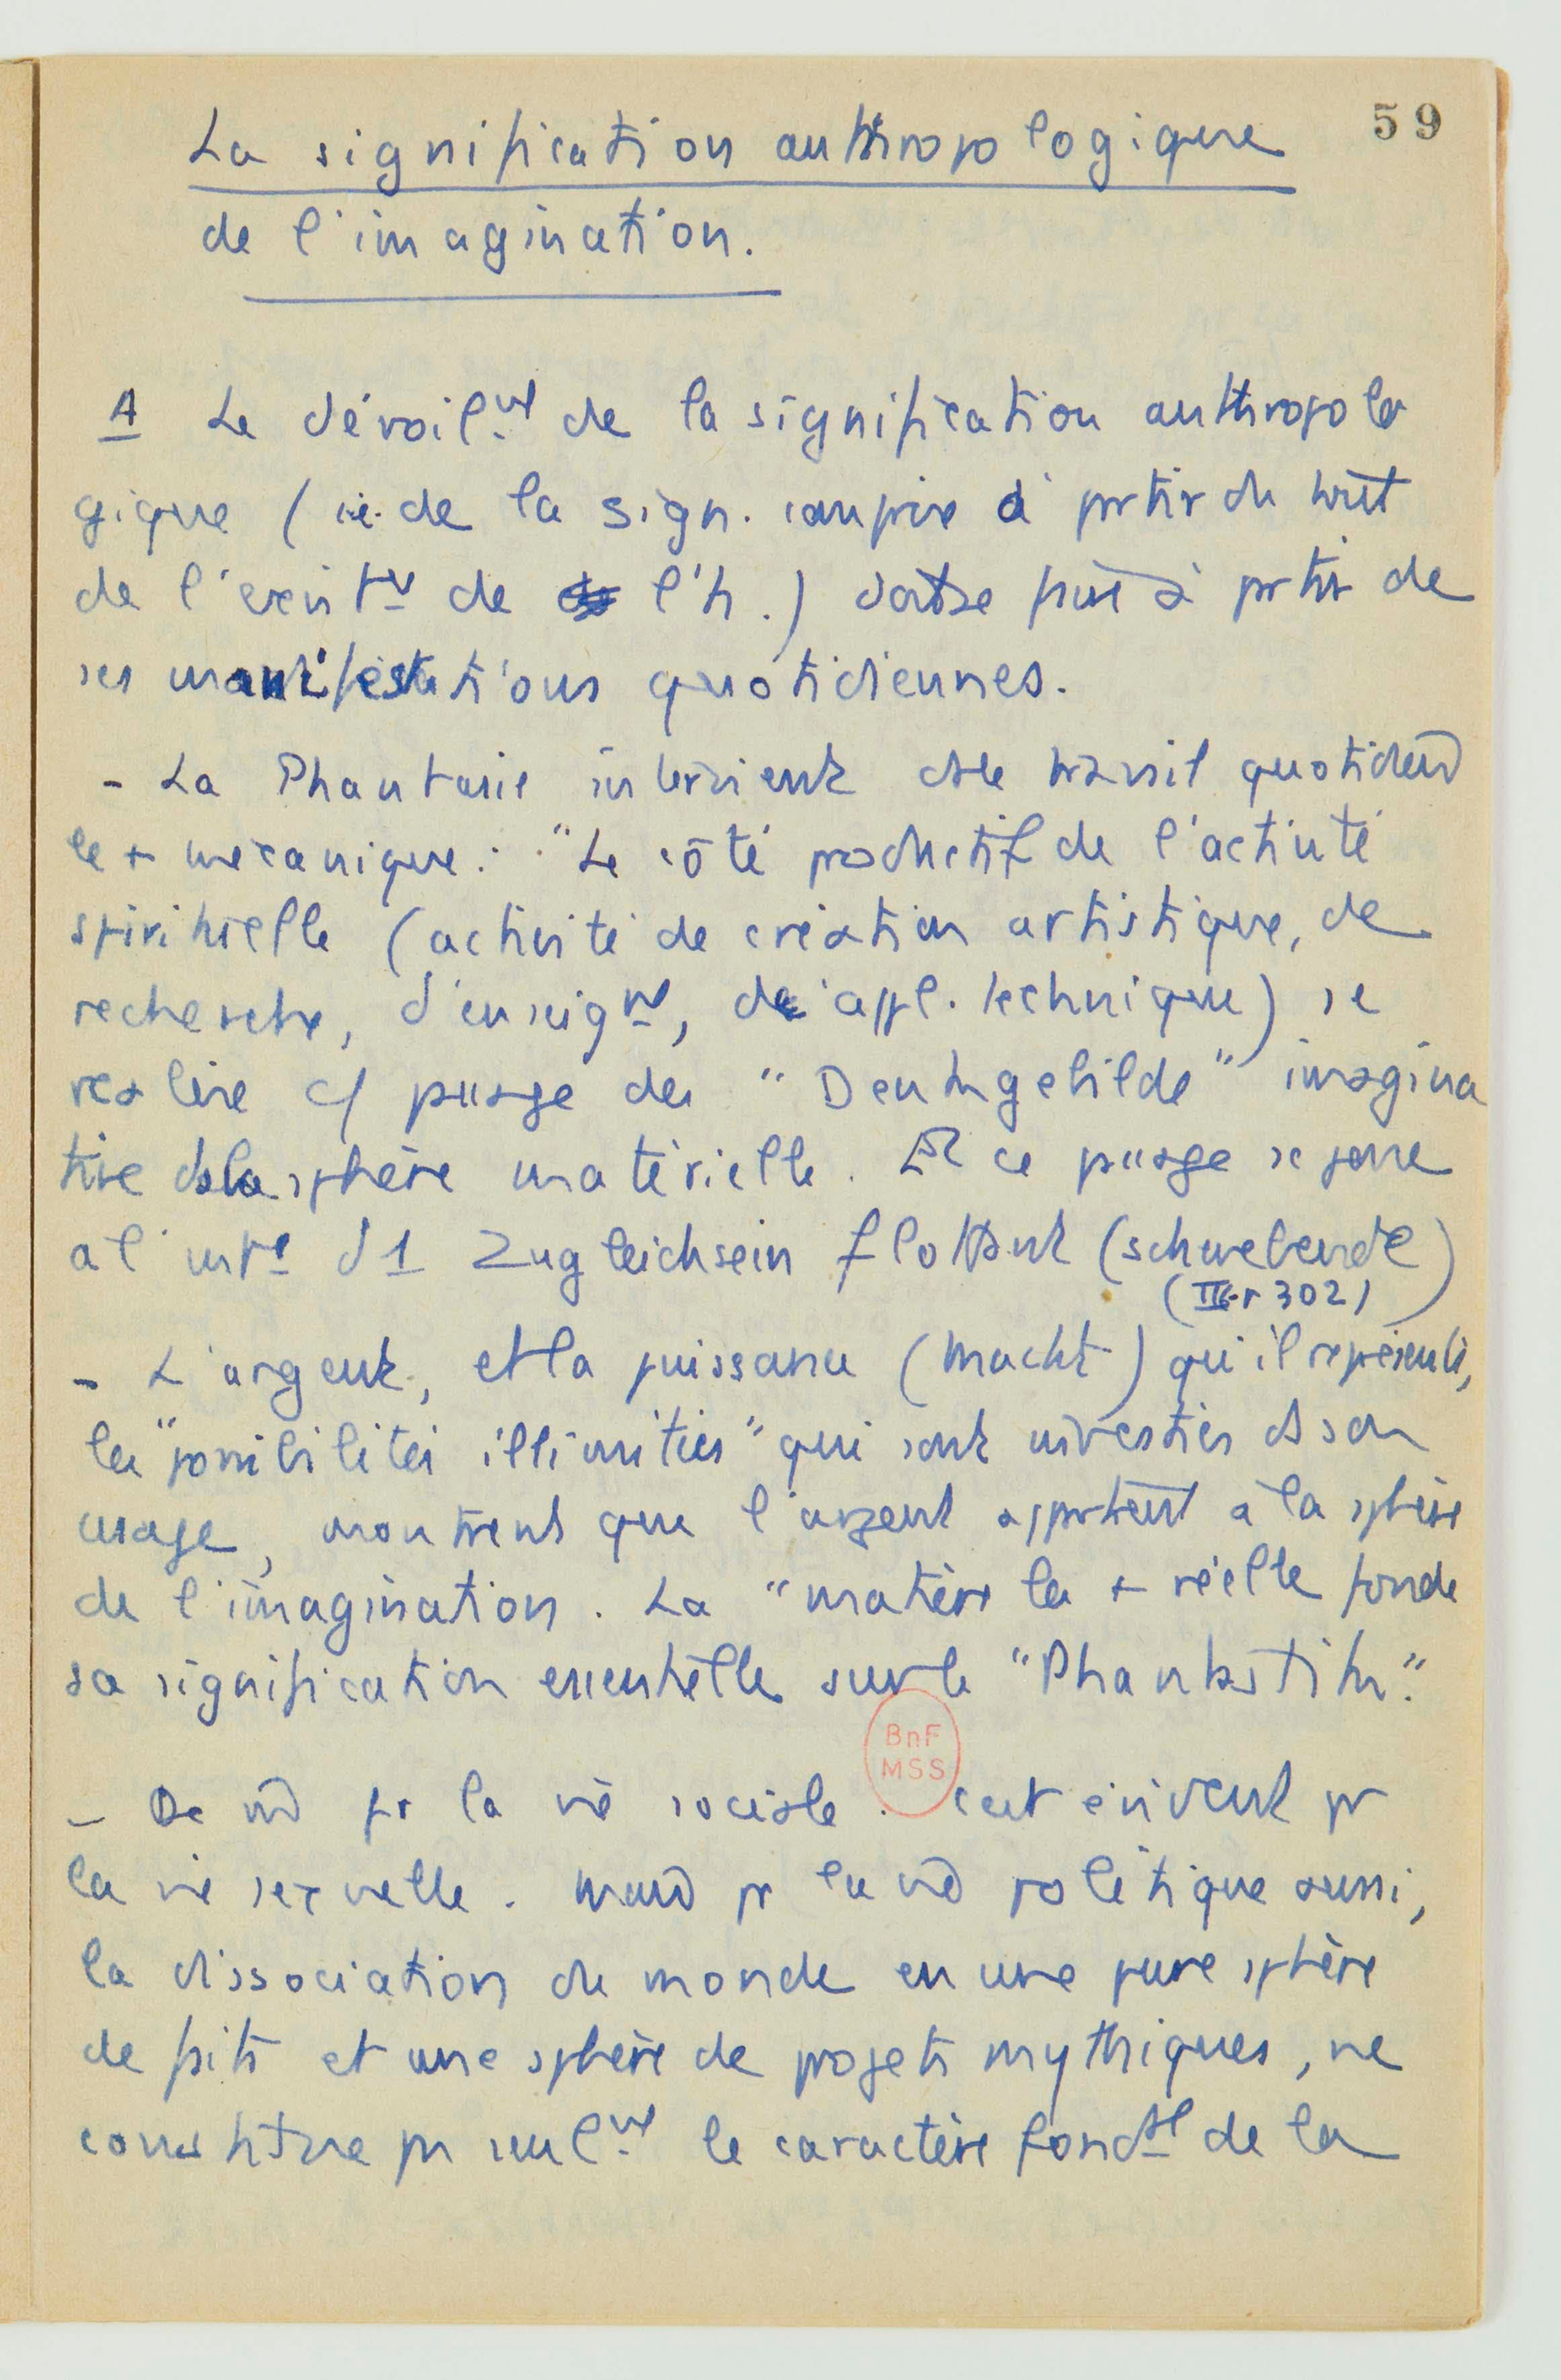 59
La signification anthropologique
de l'imagination.
A Le dévoil.nt de la signification anthropolo
gique (i.e. de la sign. comprise à partir du tout
de l'exist.ce de l'h.) doit se faire à partir de
ses manifestations quotidiennes.
- La Phantasie intervient ds le travail quotidien
le + mécanique : "Le côté productif de l'activité
spirituelle (activité de création artistique, de
recherche, d'enseignt, de appl. technique) se
réalise c/ passage des "Denkgebilde" imagina
tive ds la sphère matérielle. Et ce passage se joue
à l' d'1 Zugleichsein flottant (schwebende)
(III r 302)
- L'argent, et la puissance (Macht) qu'il représente,
les "possibilités illimitées" qui sont investies ds son
usage, montrent que l'argent appartient à la sphère
de l'imagination. La "matière la + réelle fonde
sa signification essentielle sur le "Phantastik".
- De m̂ pr la vie sociale. C'est évident pr
BnF
MSS
la vie sexuelle. Mais pr la vie politique aussi,
la dissociation du monde en une pure sphère
de faits et une sphère de projets mythiques, ne
constitue pas seul.nt le caractère fondtl de la